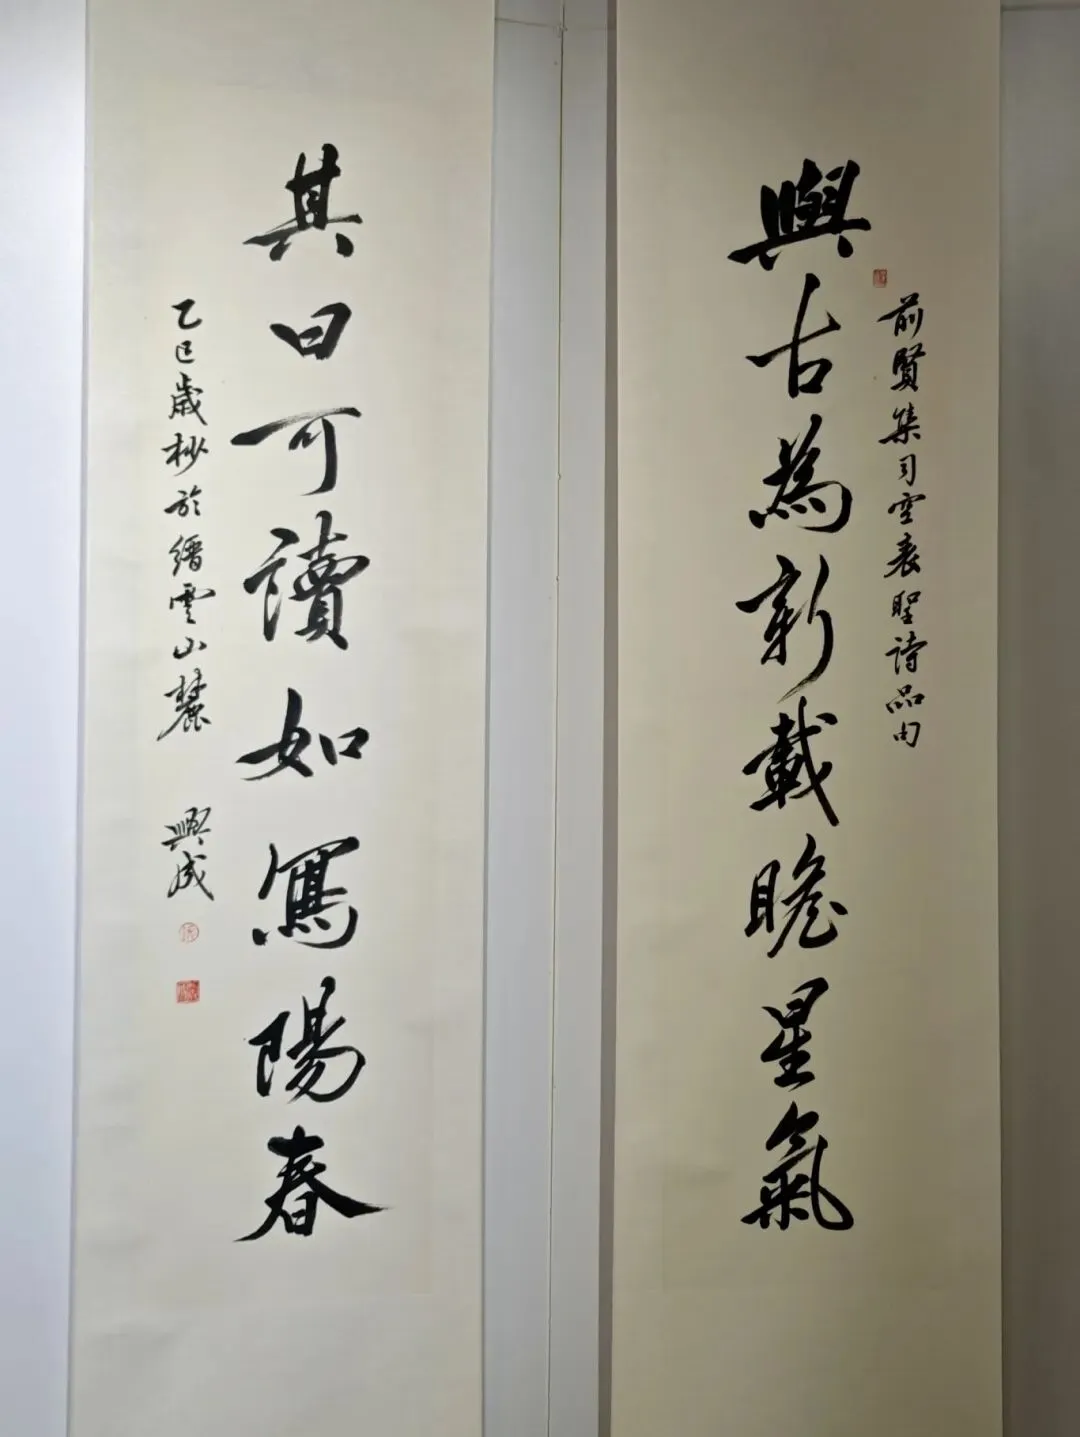 前賢集司空表聖詩品句
與古為新載瞻星氣
其曰可讀如寫陽春
乙巳歲杪於縉雲山麓 興成